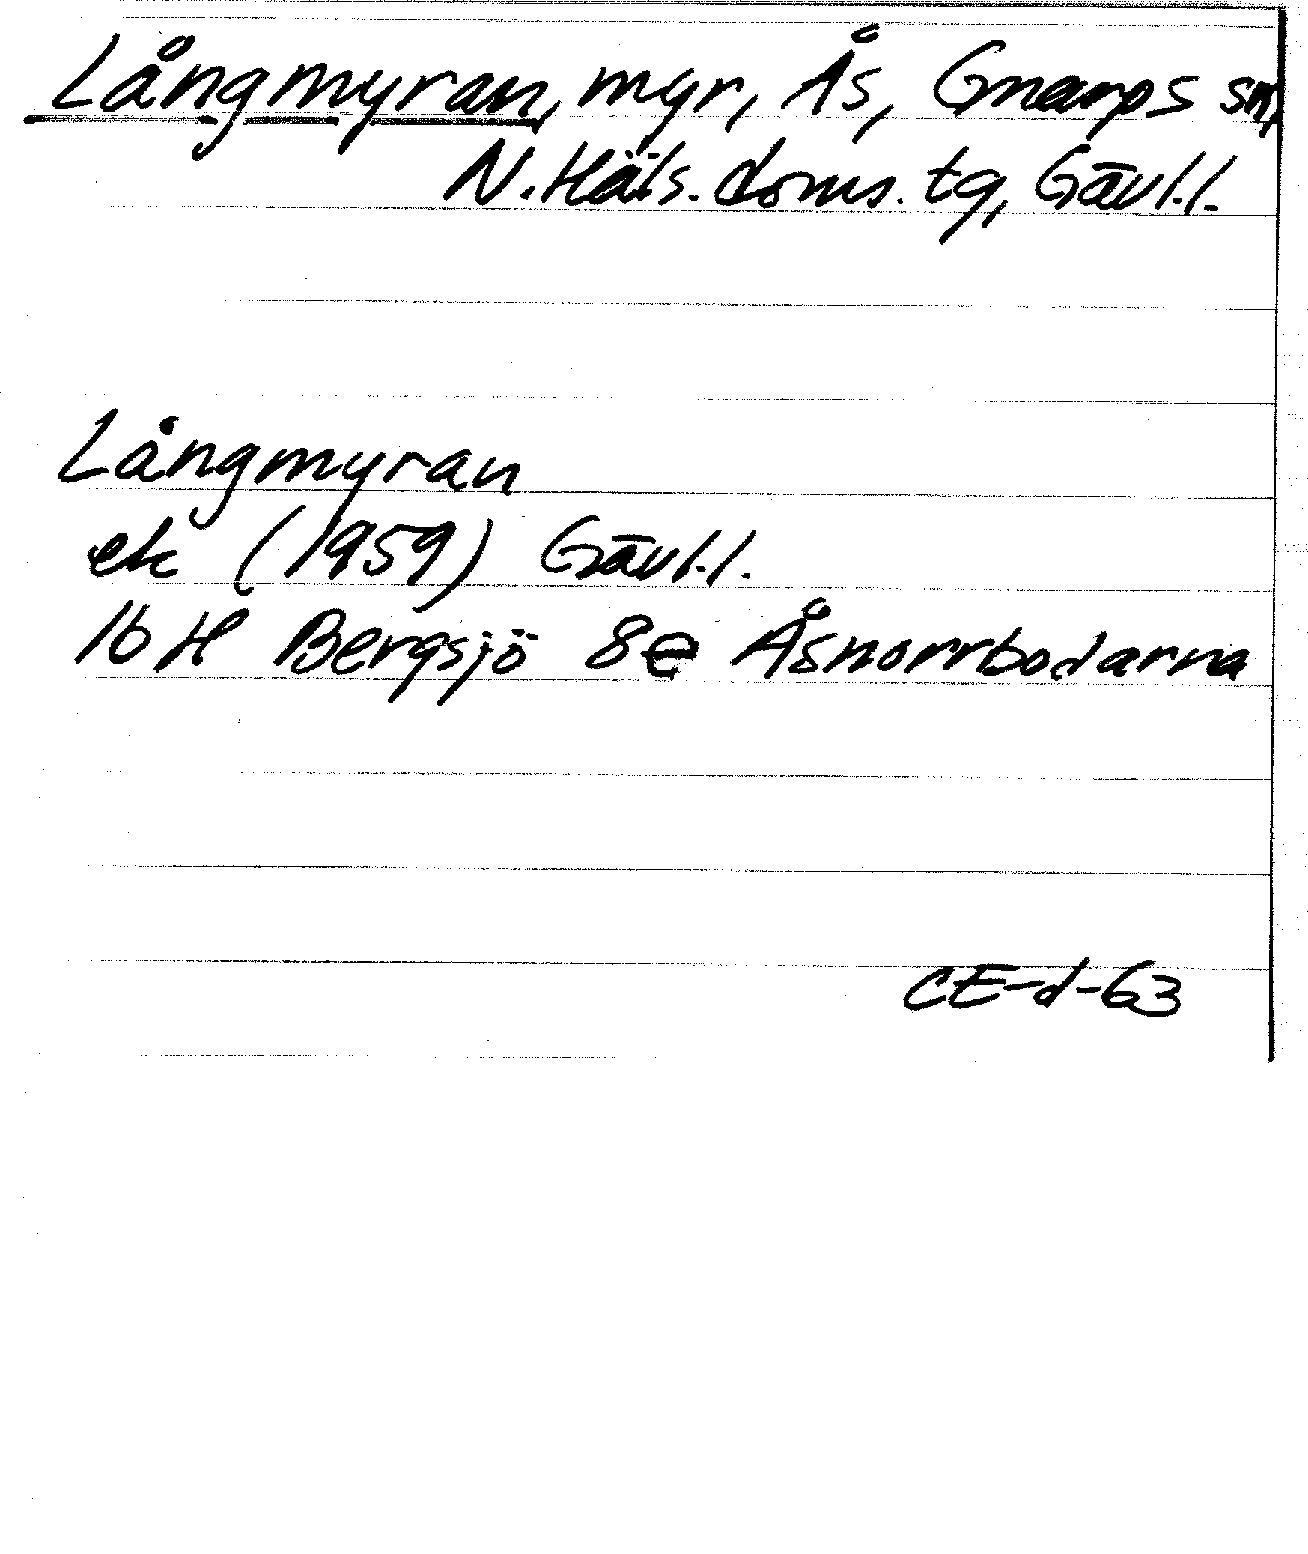 Långmyran, myr, Ås, Gnarps sn,
N. Häls. doms. tg, Gävl.l.
Långmyran
ek (1959) Gävl.l.
16 H Bergsjö 8e Åsnorrbodarna
CE-d-63